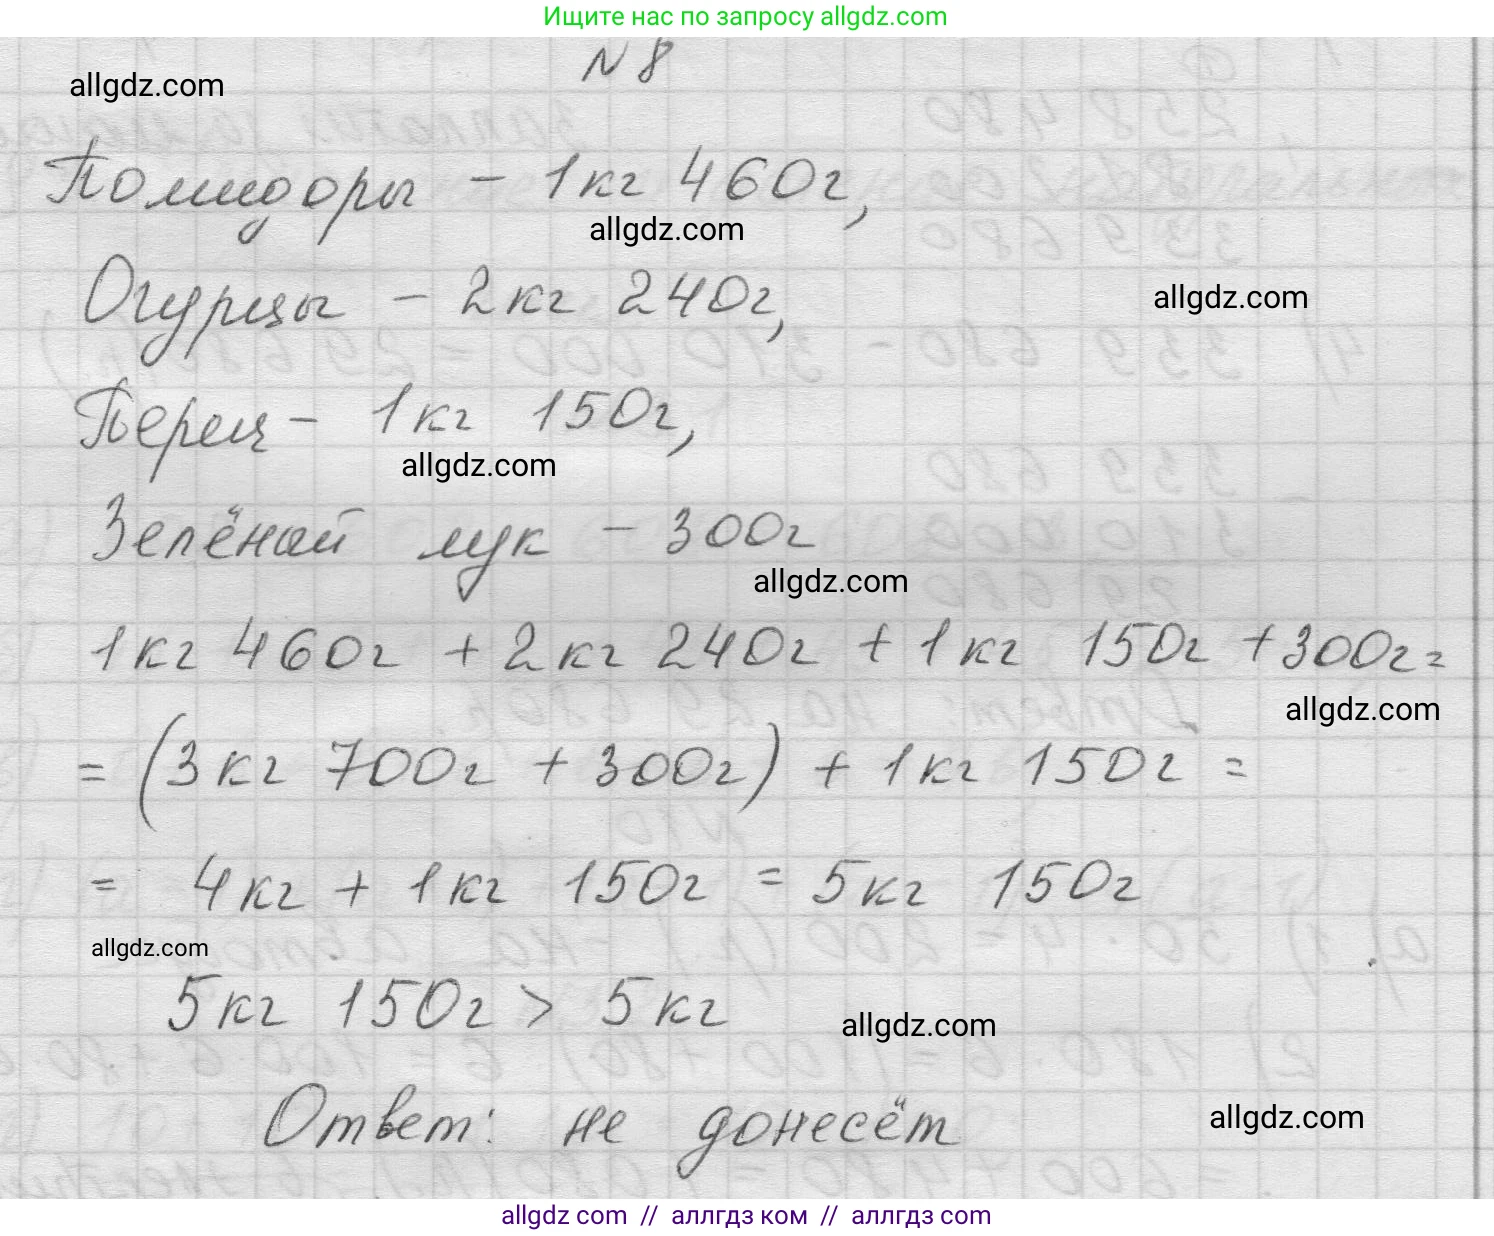 Ищите нас по запросу allgdz.com
N 8
allgdz.com
Помидоры - 1кг 460г,
allgdz.com
Огурцы - 2кг 240г,
allgdz.com
Перец - 1кг 150г,
allgdz.com
Зелёный лук - 300г
allgdz.com
1кг 460г + 2кг 240г + 1кг 150г + 300г =
allgdz.com
= (3кг 700г + 300г) + 1кг 150г =
= 4кг + 1кг 150г = 5кг 150г
allgdz.com
5кг 150г > 5кг
allgdz.com
Ответ: не донесёт
allgdz.com
allgdz com // аллгдз ком // аллгдз com